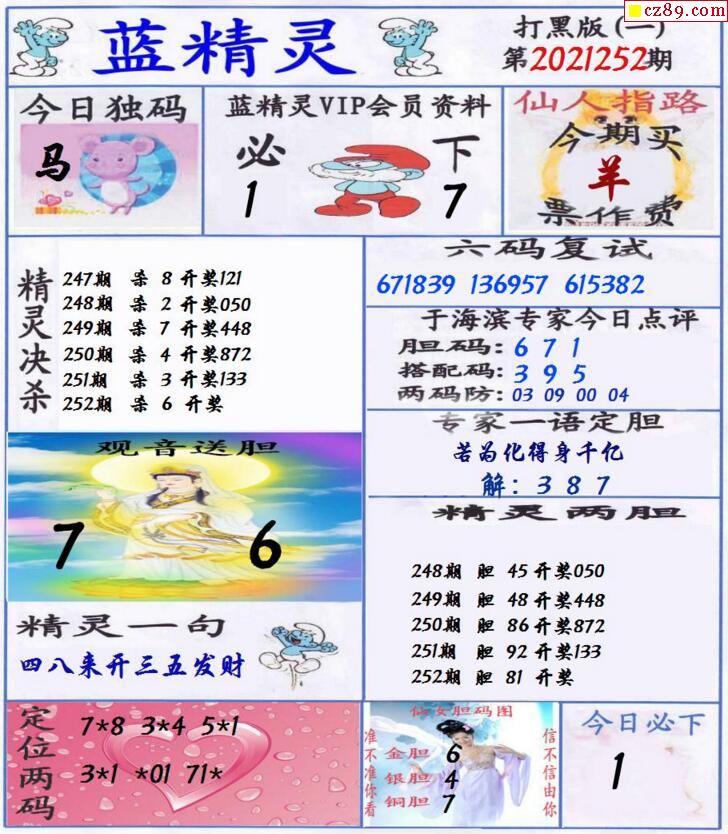 cz89.com
蓝精灵
打黑版(一)
第2021252期
今日独码
马
蓝精灵VIP会员资料
必 下
1 7
仙人指路
今期买
羊
票作费
精灵决杀
247期 杀 8 开奖121
248期 杀 2 开奖050
249期 杀 7 开奖448
250期 杀 4 开奖872
251期 杀 3 开奖133
252期 杀 6 开奖
六码复试
671839 136957 615382
于海滨专家今日点评
胆码: 6 7 1
搭配码: 3 9 5
两码防: 03 09 00 04
专家一语定胆
若为化得身千亿
解: 3 8 7
观音送胆
7 6
精灵两胆
248期 胆 45 开奖050
249期 胆 48 开奖448
250期 胆 86 开奖872
251期 胆 92 开奖133
252期 胆 81 开奖
精灵一句
四八来开三五发财
定位两码
7*8 3*4 5*1
3*1 *01 71*
仙女胆码图
准不准你看
金胆 6
银胆 4
铜胆 7
信不信由你
今日必下
1